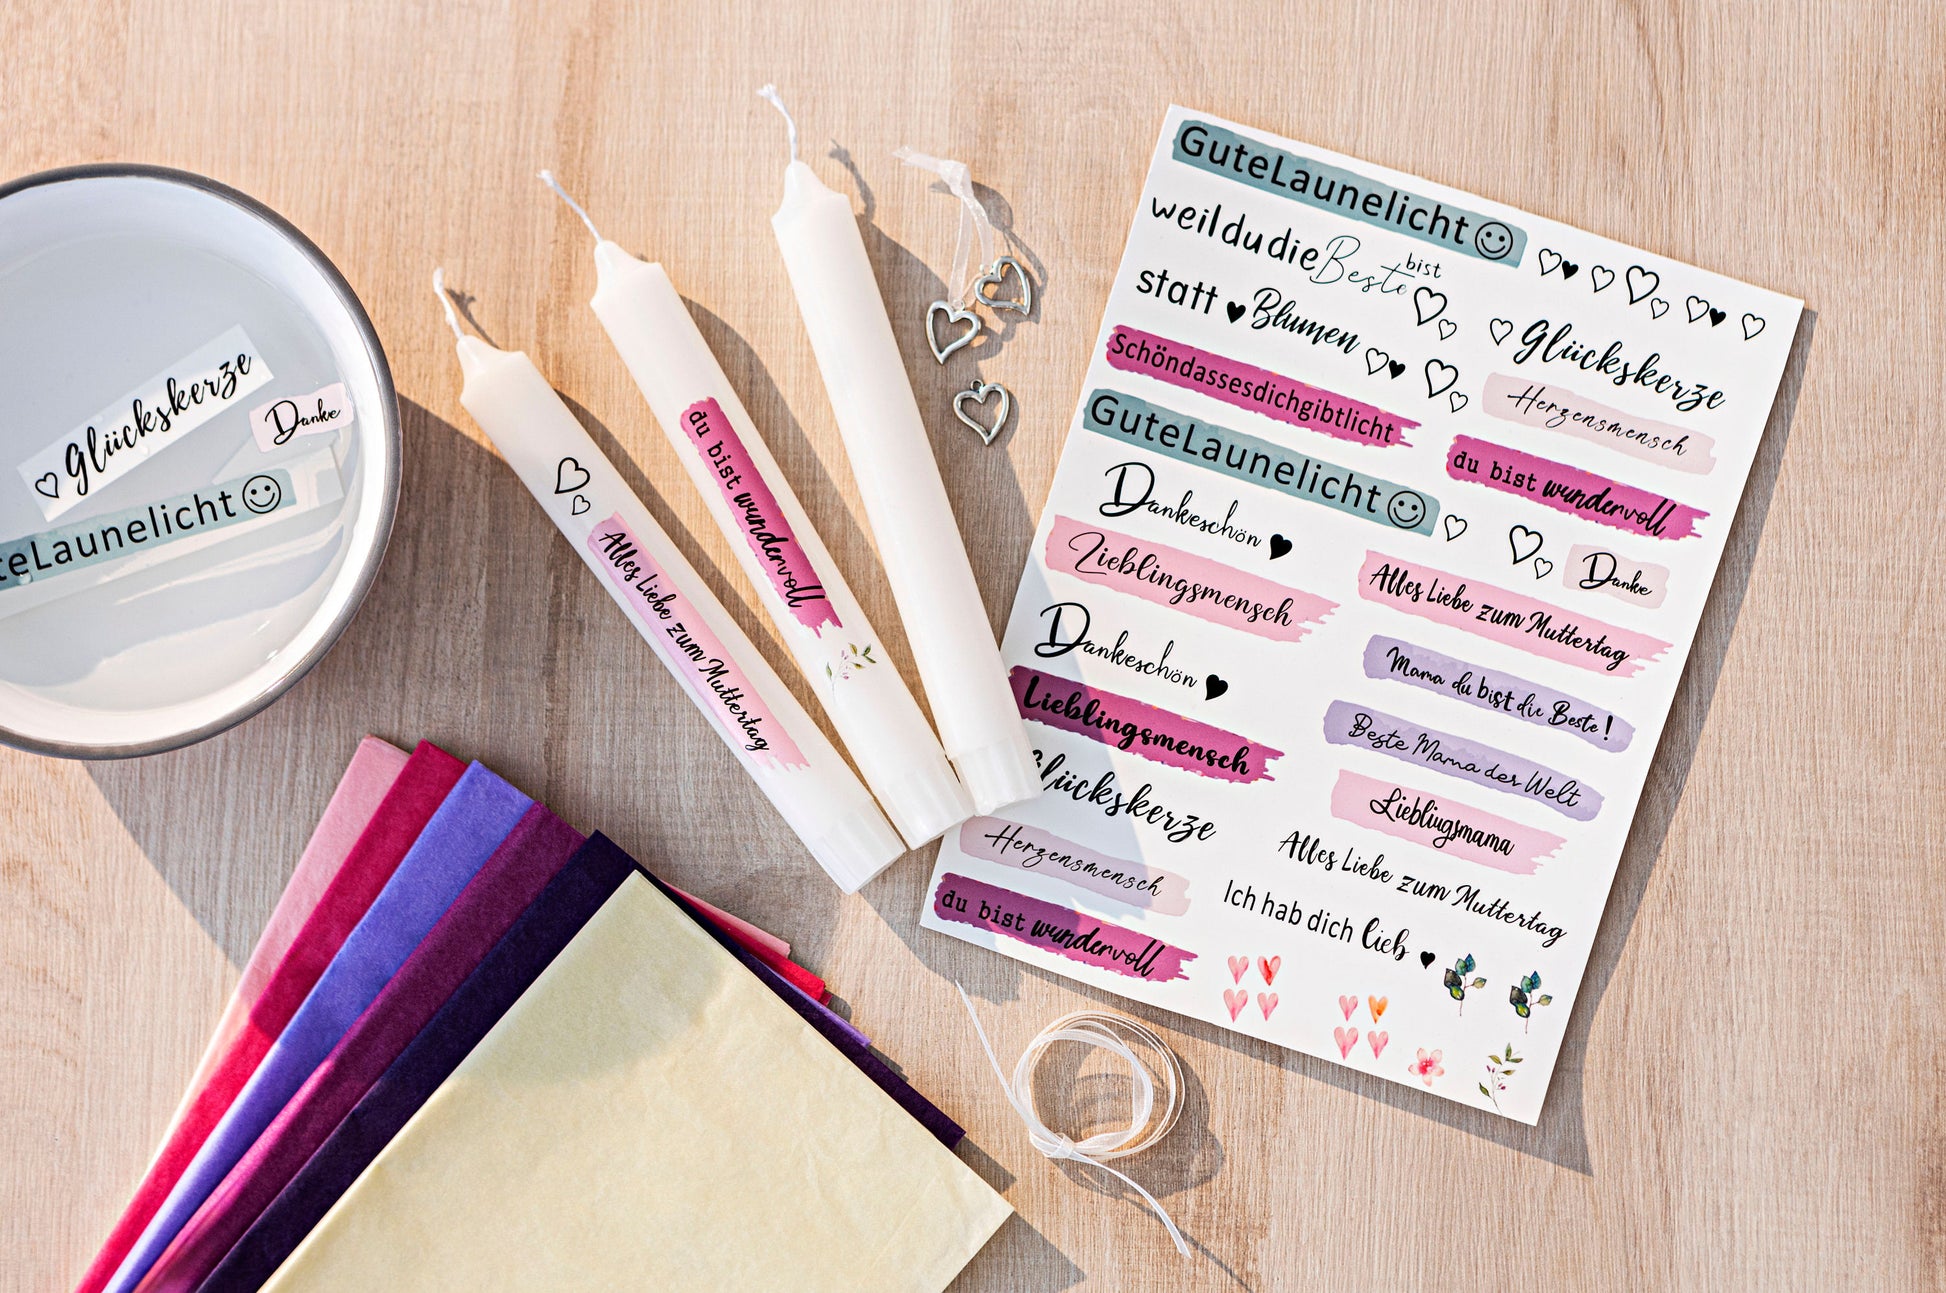 Glückskerze
Danke
teLaunelicht
Alles Liebe zum Muttertag
du bist wundervoll
GuteLaunelicht
weil du die Beste bist
statt Blumen
Glückskerze
Schöndassesdichgibtlicht
Herzensmensch
GuteLaunelicht
du bist wundervoll
Dankeschön
Danke
Lieblingsmensch
Alles Liebe zum Muttertag
Dankeschön
Mama du bist die Beste!
Lieblingsmensch
Beste Mama der Welt
lückskerze
Lieblingsmama
Herzensmensch
Alles Liebe zum Muttertag
du bist wundervoll
Ich hab dich lieb